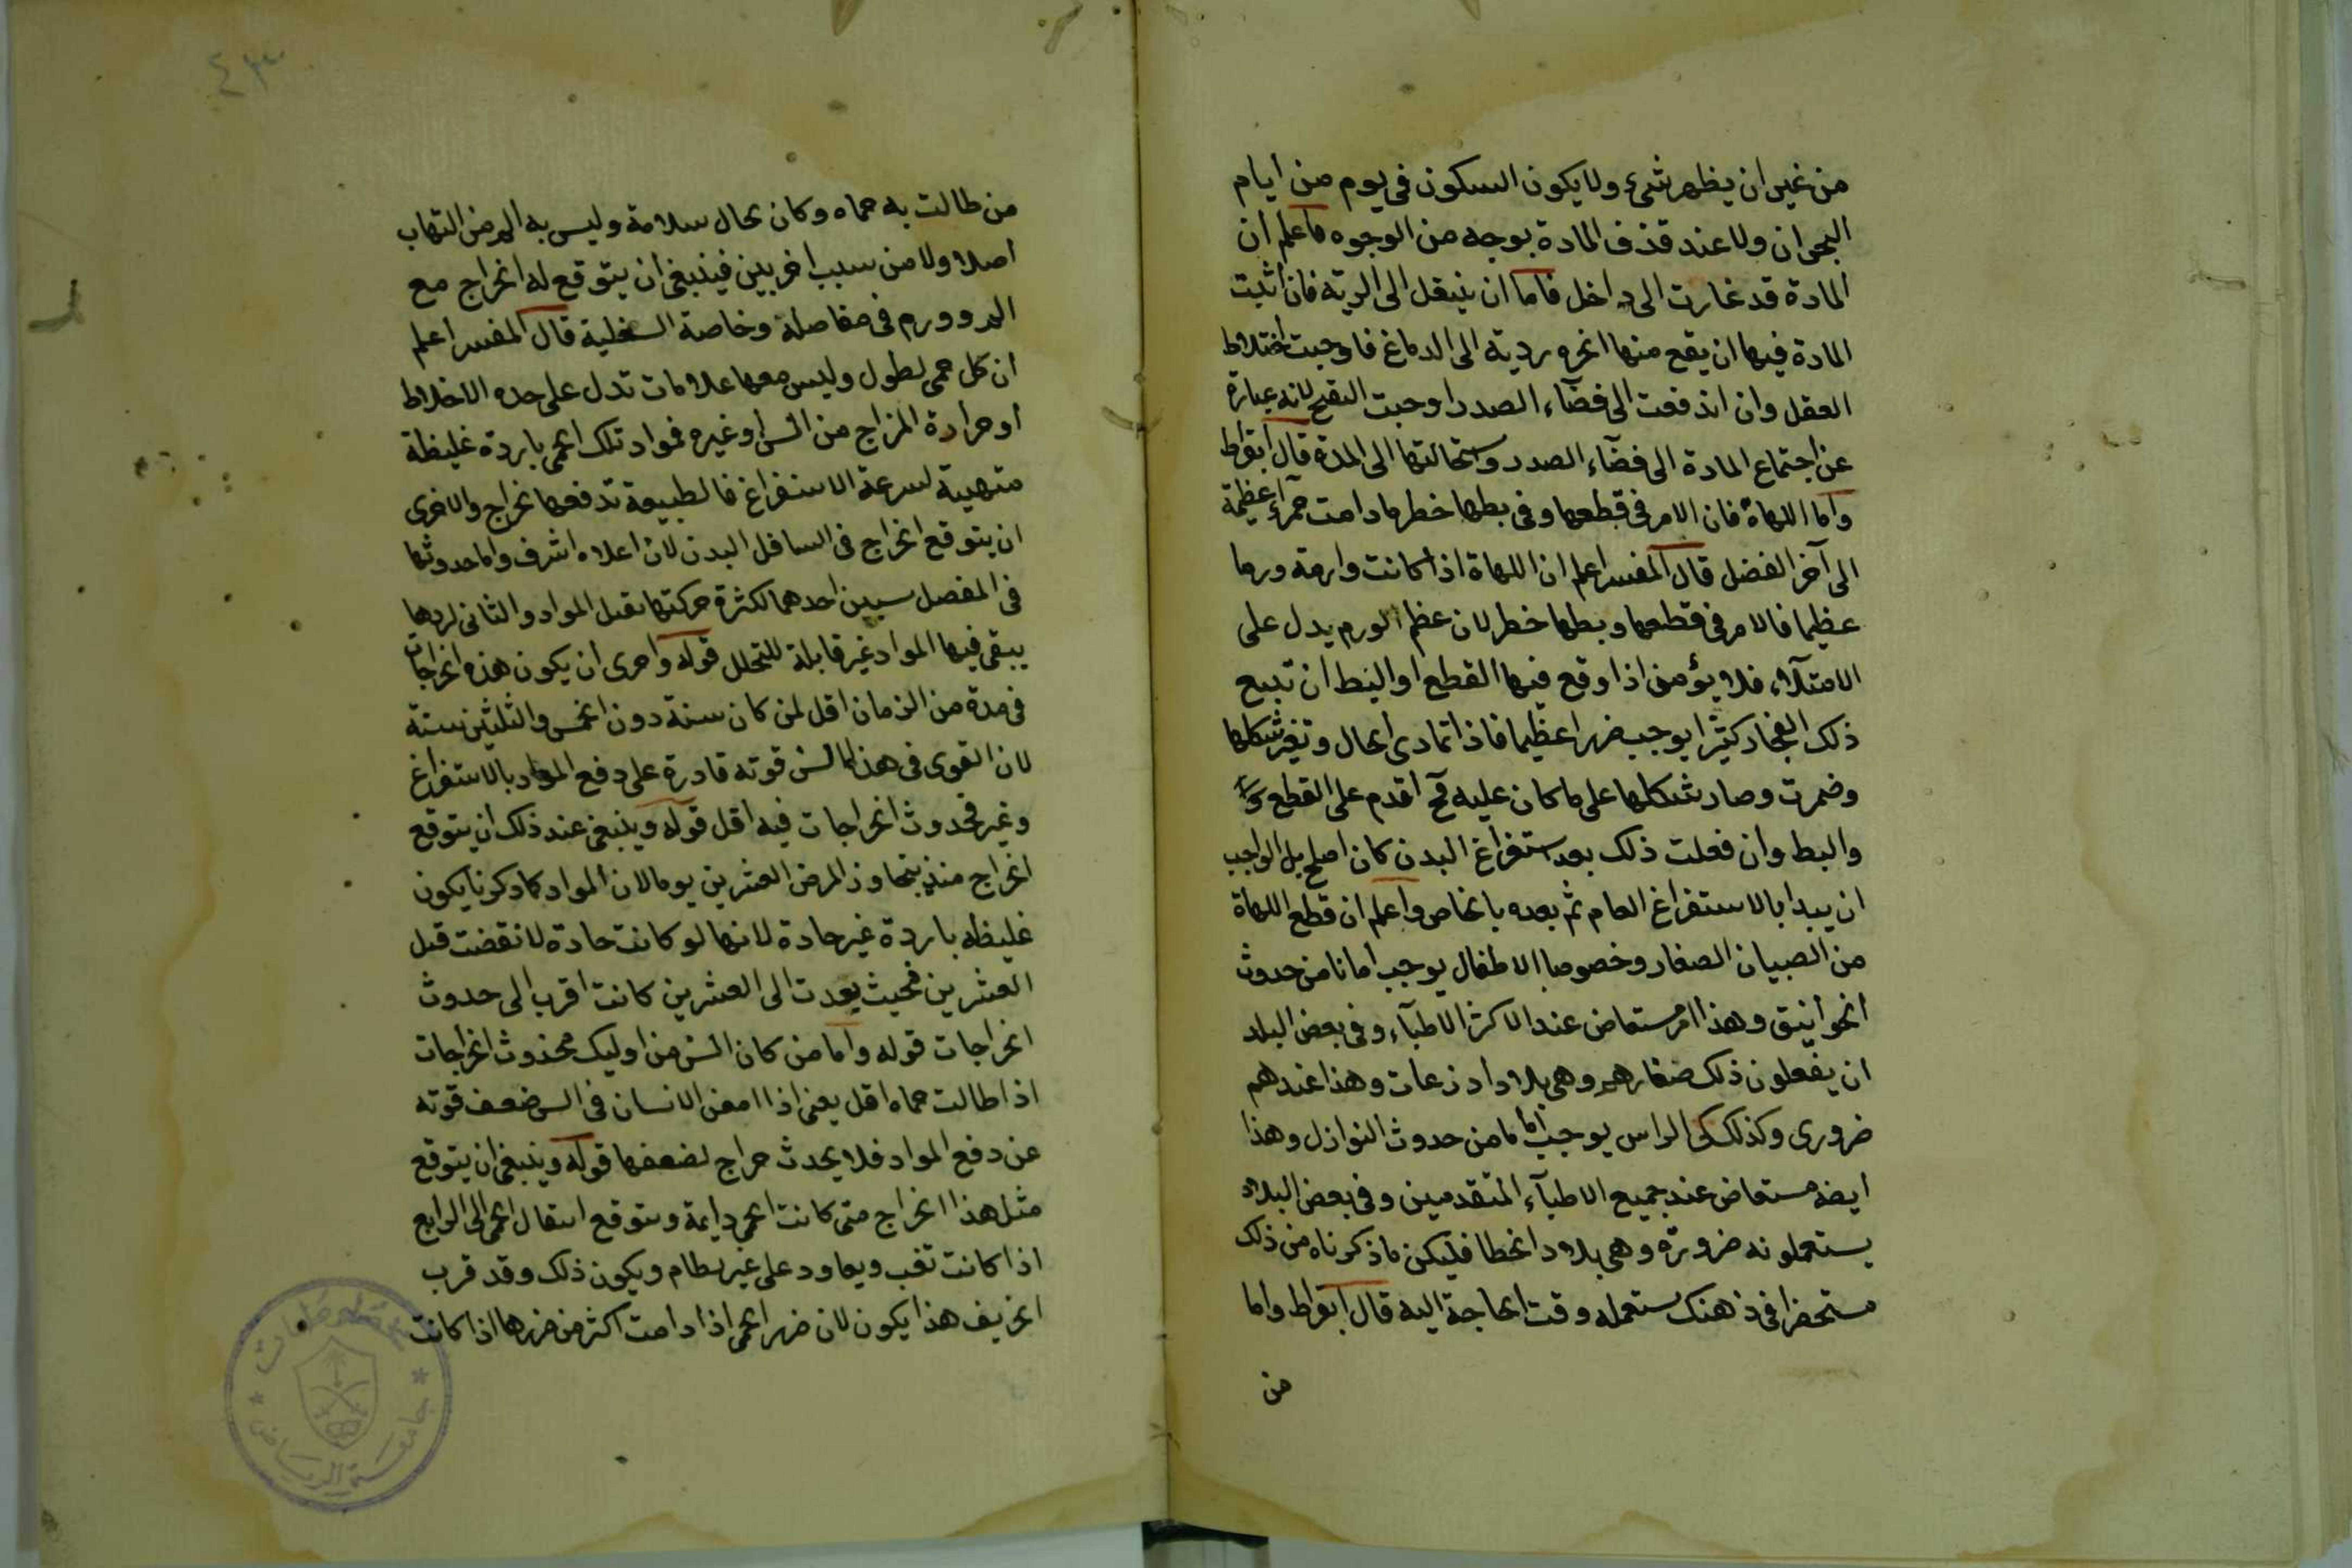 من غير ان يظهر شيء ولا يكون السكون فى يوم من ايام
البحران ولا عند قذف المادة بوجه من الوجوه فاعلم ان
المادة قد غارت الى داخل فاما ان ينتقل الى الرية فان اثبت
المادة فيها ان يقع منها ابخره ردية الى الدماغ فاوجبت اختلاط
العقل وان اندفعت الى فضآء الصدر اوجبت التقيح لانه عبارة
عن اجتماع المادة الى فضآء الصدر واستحالتها الى المدة قال ابقراط
واما اللهاة فان الامر فى قطعها وفى بطها خطر ما دامت حمرآء عظيمة
الى آخر الفصل قال المفسر اعلم ان اللهاة اذا كانت وارمة ورما
عظيما فالامر فى قطعها وبطها خطر لان عظم الورم يدل على
الامتلآء فلا يؤمن اذا وقع فيها القطع او البط ان تبيع
ذلك انفجار كثيرا يوجب ضررا عظيما فاذا تمادى الحال وتغير شكلها
وضمرت وصار شكلها على ما كان عليه فح اقدم على القطع
والبط وان فعلت ذلك بعد استفراغ البدن كان اصلح بل الواجب
ان يبدا بالاستفراغ العام ثم بعده بالخاص واعلم ان قطع اللهاة
من الصبيان الصغار وخصوصا الاطفال يوجب امانا من حدوث
الخوانيق وهذا امر مستفاض عند الاكثر الاطبآء وفى بعض البلاد
ان يفعلون ذلك صغارهم وهى بلاد ادزعات وهذا عندهم
ضرورى وكذلك كى الراس يوجب امانا من حدوث النوازل وهذا
ايضه مستفاض عند جميع الاطبآء المتقدمين وفى بعض البلاد
يستعملونه ضرورة وهى بلاد الخطا فليكن ما ذكرناه من ذلك
مستحضرا فى ذهنك ستعمله وقت الحاجة اليه قال ابقراط واما
من
٤٣
من طالت به حماه وكان بحال سلامة وليس به الم من التهاب
اصلا ولا من سبب اخر بين فينبغى ان يتوقع له الخراج مع
الم وورم فى مفاصله وخاصة السفلية قال المفسر اعلم
ان كل حمى تطول وليس معها علامات تدل على حده الاخلاط
او حرارة المزاج من السن او غيره فمواد تلك الحمى باردة غليظة
متهيية لسرعة الاستفراغ فالطبيعة تدفعها بخراج والاخرى
ان يتوقع الخراج فى السافل البدن لان اعلاه اشرف واما حدوثها
فى المفصل سببين احدهما لكثرة حركتها تقبل المواد والثانى لبردها
يبقى فيها المواد غير قابلة للتحلل قوله واحرى ان يكون هذه الخراجات
فى مدة من الزمان اقل لمن كان سنة دون الخمس والثلثين سنة
لان القوى فى هذا السن قوته قادرة على دفع المواد بالاستفراغ
وغيره فحدوث الخراجات فيه اقل قوله وينبغى عند ذلك ان يتوقع
الخراج منذ يتجاوز المرض العشرين يوما لان المواد كما ذكرنا يكون
غليظه باردة غير حادة لانها لو كانت حادة لانقضت قبل
العشرين فحيث بعدت الى العشرين كانت اقرب الى حدوث
الخراجات قوله واما من كان اسن من اوليك فحدوث الخراجات
اذا طالت حماه اقل يعنى اذا امعن الانسان فى السن ضعف قوته
عن دفع المواد فلا يحدث خراج لضعفها قوله وينبغى ان يتوقع
مثل هذا الخراج متى كانت الحمى دايمة ويتوقع انتقال الحمى الى الرابع
اذا كانت تغب ويعاود على غير نظام ويكون ذلك وقد قرب
الخريف هذا يكون لان ضرر الحمى اذا دامت اكثر من ضررها اذا كانت
جامعة الرياض